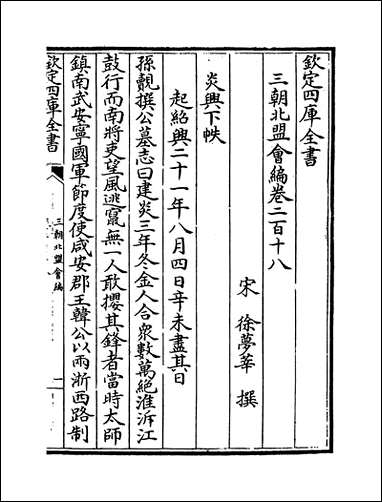 欽定四庫全書
三朝北盟會編卷二百十八
宋 徐夢莘 撰
炎興下帙
起紹興二十一年八月四日辛未盡其日
孫覿撰公墓志曰建炎三年冬金人合衆數萬絶淮泝江
鼓行而南將吏望風逃竄無一人敢攖其鋒者當時太師
鎮南武安寧國軍節度使咸安郡王韓公以兩浙西路制
欽定四庫全書
三朝北盟會編
一